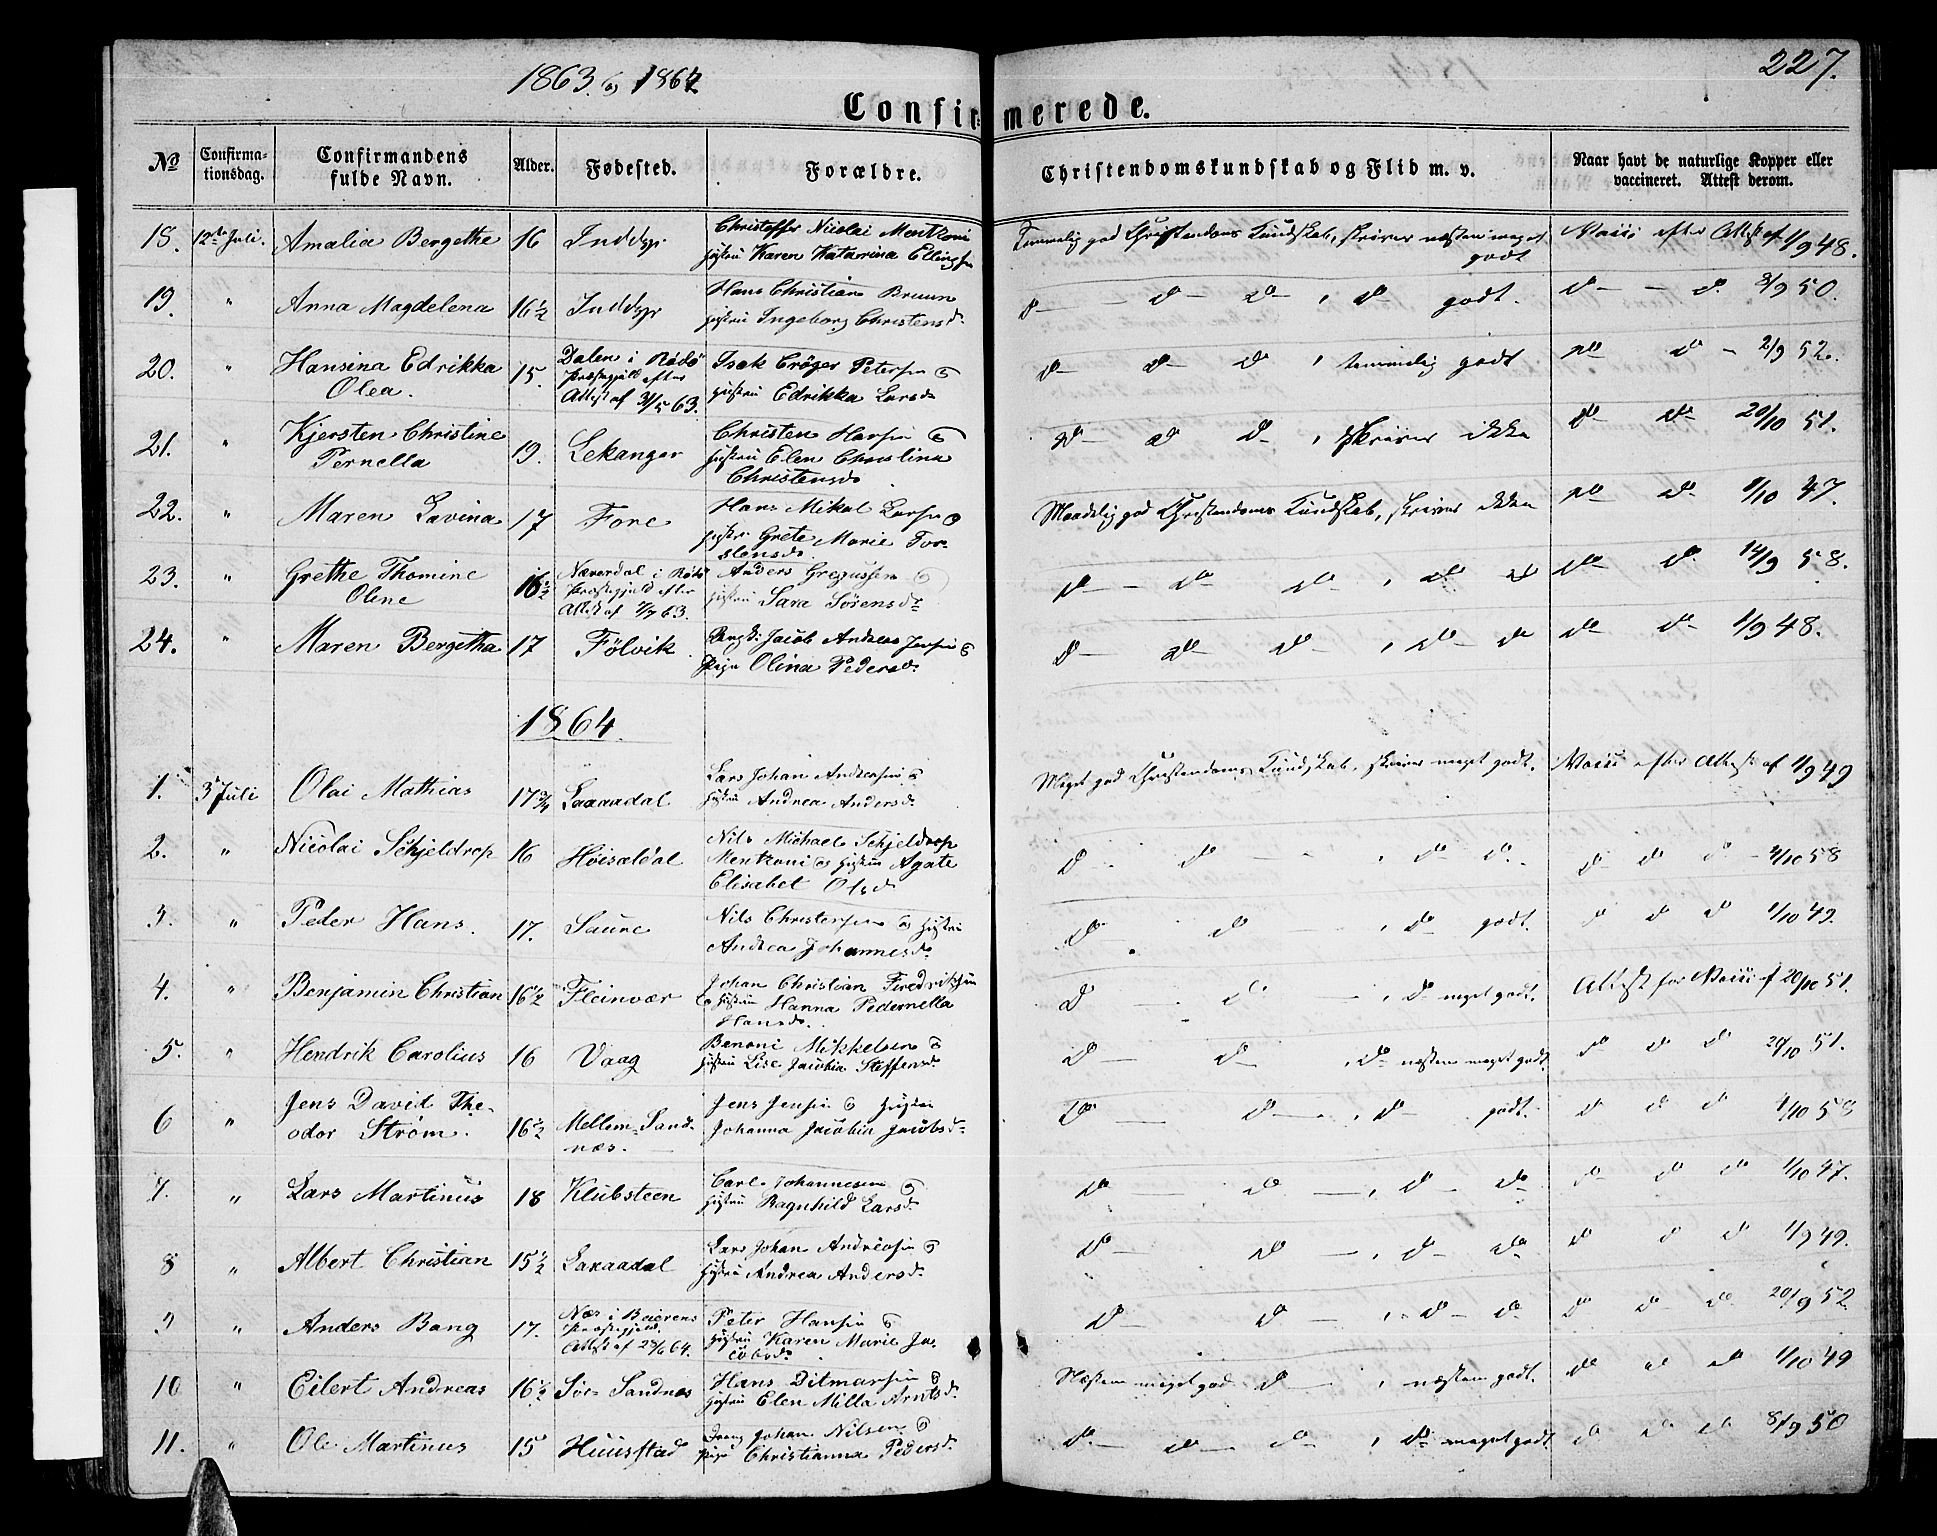 1863 & 1864
227.
Confirmerede.
No
Confirmationsdag.
Confirmandens fulde Navn.
Alder.
Fødested.
Forældre.
Christendomskundskab og Flid m. v.
Naar havt de naturlige Kopper eller vaccineret. Attest derom.
18. 12te Juli. Amalia Bergethe 16 Inddyr Christoffer Nicolai Mentzoni
Hustru Karen Katarina Ellingsd
Temmelig god Christendoms Kundskab, skriver næsten meget godt Vacc: efter Attest af 1/9 48.
19. " Anna Magdelena 16 1/2 Inddyr Hans Christian Bruun
Hustru Ingeborg Christensd.
do do do, do godt. do do 3/9 50.
20. " Hansina Edrikka
Olea. 15. Dalen i Rødø
Præstegjeld efter
Attest af 31/5 63. Isak Crøger Petersen &
Hustru Edrikka Larsd
do do do, temmelig godt do do 2/9 52.
21. " Kjersten Christine
Pernella 19. Lekanger Christen Hansen &
Hustru Elen Christina
Christensd
do do do, skriver ikke do do 20/10 51.
22. " Maren Lavina 17 Fore Hans Mikal Larsen &
Hustru Grete Marie Torstensd.
Maadelig god Christendoms Kundskab, skriver ikke do do 1/10 47.
23. " Grethe Thomine
Oline 16 1/2 Næverdal i Rødø
Præstegjeld efter
Attest af 7/7 63. Anders Gregussen &
Hustru Sara Sørensdr
do do do, do do do do 14/9 58.
24. " Maren Bergetha 17 Følvik Jacob Andreas Jensen &
Pige Olina Pedersd.
do do do, do do do do 1/9 48.
1864.
1. 3 Juli Olai Mathias 17 3/4 Laxaadal Lars Johan Andreasen &
Hustru Andrea Andersd.
Meget god Christendoms Kundskab, skriver meget godt. Vacc: efter Attest af 1/9 49
2. " Nicolai Schjeldrop 16 Høisældal Nils Michael Schjeldrop
Mentzoni & Hustru Agate
Elisabet Olsd
do do, do do. do do do 4/10 58
3. " Peder Hans. 17. Saure Nils Christensen & Hustru
Andrea Johannesd.
do do, do godt. do do do 1/10 49.
4. " Benjamin Christian 16 1/2 Fleinvær Johan Christian Fredriksen
& Hustru Hanna Pedernella
Hansd.
do do, do meget godt. Attest for Vacc: af 20/10 51.
5. " Hendrik Carolius 16 Vaag Benoni Mikkelsen &
Hustru Lise Jacobia Steffensd.
do do, do næsten meget godt. do do do 20/10 51.
6 " Jens David Theodor
Strøm. 16 1/2 Mellem-Sandnæs. Jens Jensen & Hustru
Johanna Jacobia Jacobsd.
do do, do godt. do do do 4/10 58
7. " Lars Martinus 18 Klubsteen Carl Johannesen &
Hustru Ragnhild Larsd.
do do, do do do do do 1/10 47.
8 " Albert Christian 15 1/2 Laxaadal Lars Johan Andreasen &
Hustru Andrea Andersd.
do do, do do do do do 1/9 49.
9 " Anders Bang 17. Næs i Beierens
Præstegjeld.
Attest af 24/6 64. Peter Hansen &
Hustru Karen Marie Jacobsd.
do do, do do do do do 20/9 52.
10 " Eilert Andreas 16 1/2 Sør-Sandnæs Hans Ditmarsen &
Hustru Elen Milla Arntsd.
Næsten meget god do, næsten godt. do do do 1/10 49
11. " Ole Martinus 15 Huusstad Dreng Johan Nilsen &
Pige Christianna Pedersd.
do do do, do meget godt do do do 8/9 50